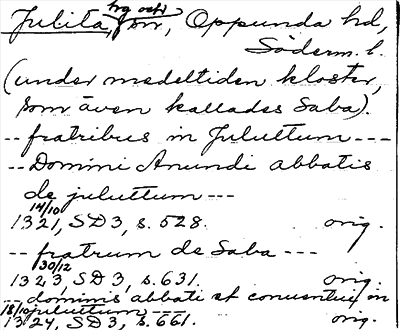 Julita, hg och sn, Oppunda hd,
Söderm. l.
(under medeltiden kloster,
som även kallades Saba).
-- fratribus in Juluttum ---
-- Domini Anundi abbatis
de juluttum ---
14/10
1321, SD 3, s. 528. orig.
-- fratrum de Saba ---
30/12
1323, SD 3, s. 631. orig.
-- dominis abbati et conuentui in
juluttum ----
18/10
1324, SD 3, s. 661. orig.